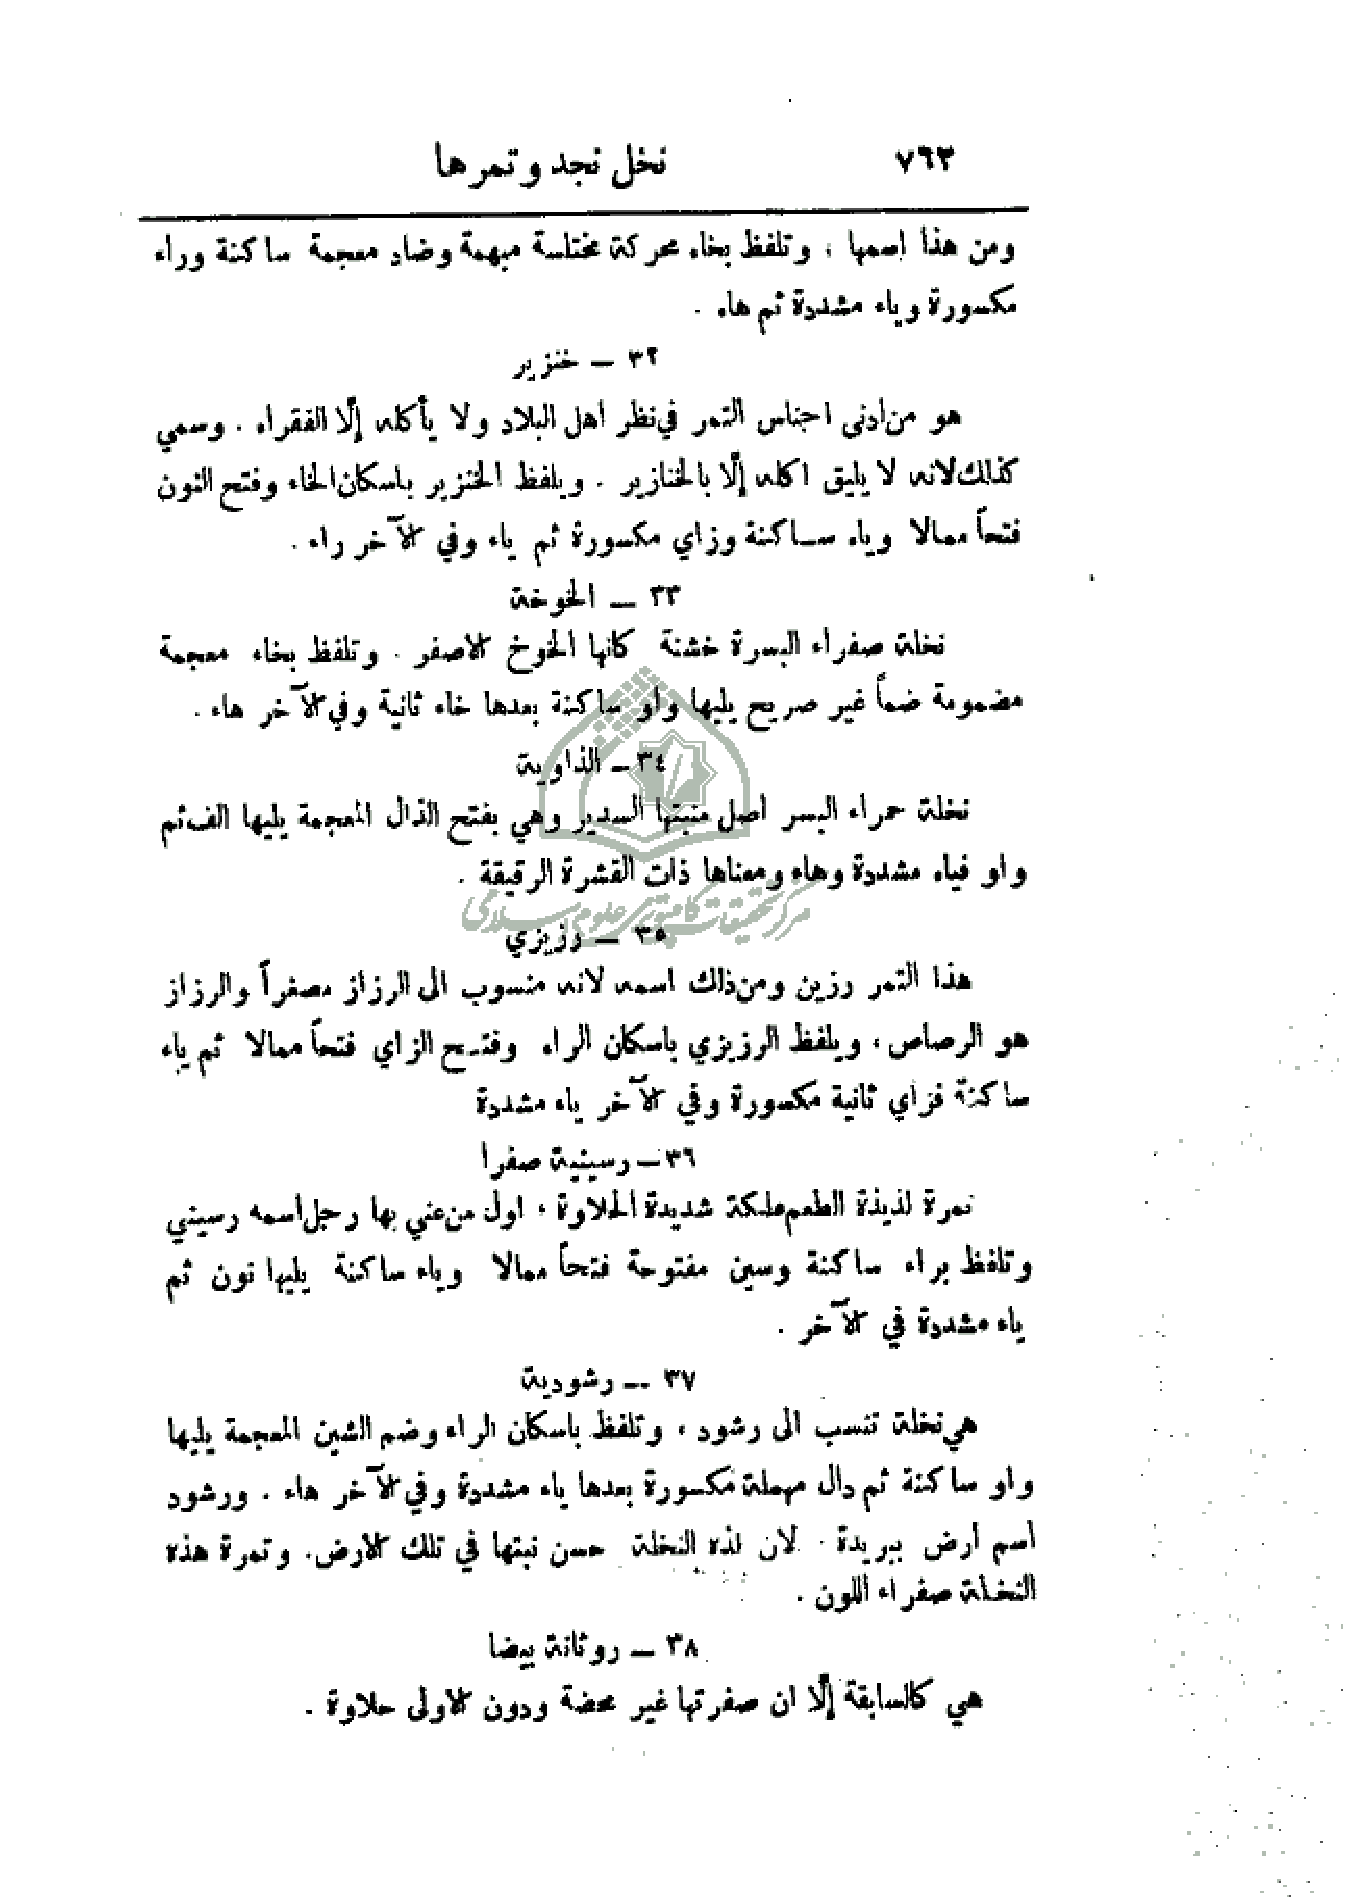 ٧٦٣ نخل نجد وتمرها
ومن هذا اسمها ، وتلفظ بخاء محركة مختلسة مبهمة وضاد معجمة ساكنة وراء
مكسورة وياء مشددة ثم هاء .
٣٢ — خنزير
هو من ادنى اجناس التمر في نظر اهل البلاد ولا يأكله إلّا الفقراء . وسمي
كذلك لانه لا يليق اكله إلّا بالخنازير . ويلفظ الخنزير باسكان الخاء وفتح النون
فتحاً ممالا وياء ساكنة وزاي مكسورة ثم ياء وفي الآخر راء .
٣٣ — الخوخة
نخلة صفراء البسرة خشنة كانها الخوخ الاصفر . وتلفظ بخاء معجمة
مضمومة ضماً غير صريح يليها واو ساكنة بعدها خاء ثانية وفي الآخر هاء .
٣٤ — الذاوية
نخلة حمراء البسر اصل منبتها السدير وهي بفتح الذال المعجمة يليها الف ثم
واو فياء مشددة وهاء ومعناها ذات القشرة الرقيقة .
مركز تحقيقات كامپيوترى علوم اسلامى
٣٥ — رزيزي
هذا التمر رزين ومن ذاك اسمه لانه منسوب الى الرزاز مصغراً والرزاز
هو الرصاص ، ويلفظ الرزيزي باسكان الراء وفتح الزاي فتحاً ممالا ثم ياء
ساكنة فزاي ثانية مكسورة وفي الآخر ياء مشددة
٣٦ — رسينية صفرا
تمرة لذيذة الطعم علكة شديدة الحلاوة ، اول من عني بها رجل اسمه رسيني
وتلفظ براء ساكنة وسين مفتوحة فتحاً ممالا وياء ساكنة يليها نون ثم
ياء مشددة في الآخر .
٣٧ — رشودية
هي نخلة تنسب الى رشود ، وتلفظ باسكان الراء وضم الشين المعجمة يليها
واو ساكنة ثم دال مهملة مكسورة بعدها ياء مشددة وفي الآخر هاء . ورشود
أسم أرض ببريدة . لان لذه النخلة حسن نبتها في تلك الارض . وتمرة هذه
النخلة صفراء اللون .
٣٨ — روثانة بيضا
هي كالسابقة إلّا ان صفرتها غير محضة ودون الاولى حلاوة .